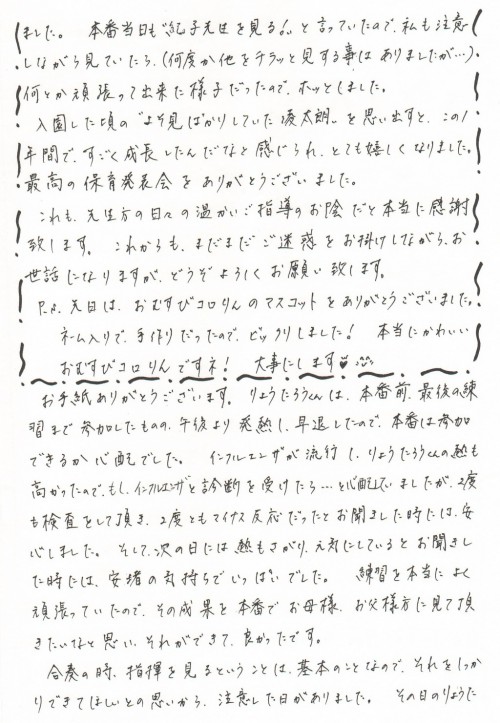 ました。 本番当日も"紀子先生を見る!"と言っていたので、私も注意
しながら見ていたら、(何度か他をチラッと見する事はありましたが…)
何とか頑張って出来た様子だったので、ホッとしました。
入園した頃の"よそ見ばかりしていた凌太朗"を思い出すと、この1
年間で、すごく成長したんだなと感じられ、とても嬉しくなりました。
最高の保育発表会をありがとうございました。
これも、先生方の日々の温かいご指導のお陰だと本当に感謝
致します。 これからも、まだまだご迷惑をお掛けしながら、お
世話になりますが、どうぞよろしくお願い致します。
P.S. 先日は、おむすびコロりんのマスコットをありがとうございました。
ネーム入りで、手作りだったので、ビックリしました! 本当にかわいい
おむすびコロりんですネ! 大事にします♥
お手紙ありがとうございます。 りょうたろうくんは、本番前、最後の練
習まで参加したものの、午後より発熱し、早退したので、本番は参加
できるか心配でした。 インフルエンザが流行し、りょうたろうくんの熱も
高かったので、もし、インフルエンザと診断を受けたら…と心配していましたが、2度
も検査をして頂き、2度ともマイナス反応だったとお聞きした時には、安
心しました。 そして、次の日には熱もさがり、元気にしているとお聞きし
た時には、安堵の気持ちでいっぱいでした。 練習を本当によく
頑張っていたので、その成果を本番でお母様、お父様方に見て頂
きたいなと思い、それができて、良かったです。
合奏の時、指揮を見るということは、基本のことなので、それをしっか
りできてほしいとの思いから、注意した日がありました。 その日のりょうた